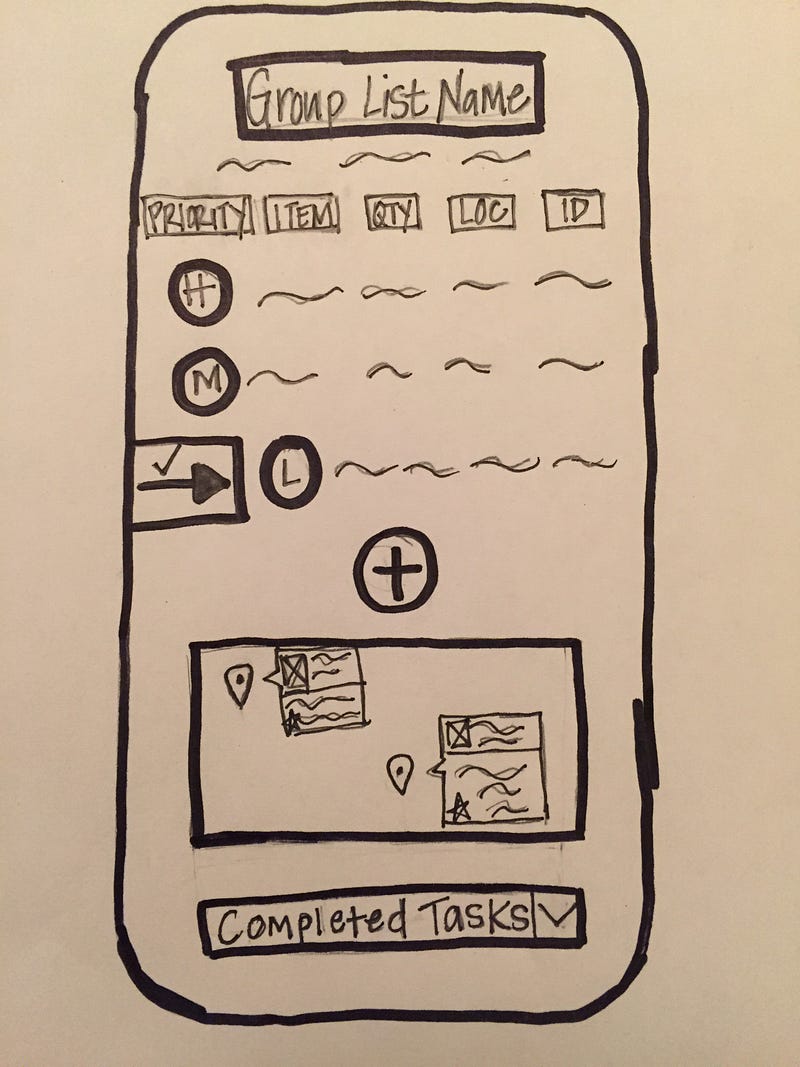 Group List Name
PRIORITY ITEM QTY LOC ID
H
M
L
Completed Tasks